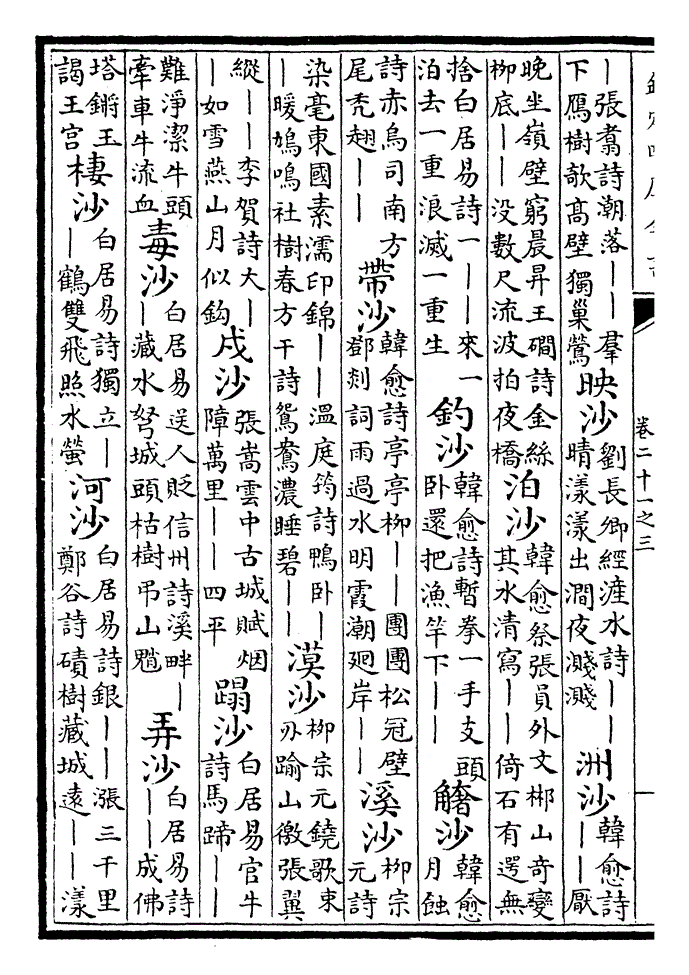 卷二十一之三
｜張翥詩潮落｜｜羣
下鴈樹欹髙壁獨巢鶯
映沙
劉長卿經漄水詩｜｜
晴漾漾出澗夜濺濺
洲沙
韓愈詩
｜｜厭
晚坐嶺壁窮晨昇王磵詩金絲
栁底｜｜没數尺流波拍夜橋
泊沙
韓愈祭張員外文郴山竒變
其水清寫｜｜倚石有遌無
捨白居易詩一｜｜來一
泊去一重浪滅一重生
釣沙
韓愈詩暫拳一手支頭
卧還把漁竿下｜｜
觰沙
韓愈
月蝕
詩赤烏司南方
尾秃翅｜｜
帶沙
韓愈詩亭亭栁｜｜團團松冠壁
鄧剡詞雨過水明霞潮廻岸｜｜
溪沙
栁宗
元詩
染毫東國素濡印錦｜｜温庭筠詩鴨卧｜
｜暖鳩鳴社樹春方干詩鴛鴦濃睡碧｜｜
漠沙
栁宗元鐃歌東
刅踰山徼張翼
縱｜｜李賀詩大｜
｜如雪燕山月似鈎
戍沙
張嵩雲中古城賦烟
障萬里｜｜四平
蹋沙
白居易官牛
詩馬蹄｜｜
難淨潔牛頭
牽車牛流血
毒沙
白居易送人貶信州詩溪畔｜
｜藏水弩城頭枯樹弔山魈
弄沙
白居易詩
｜｜成佛
塔鏘玉
謁王宫
棲沙
白居易詩獨立｜
｜鶴雙飛照水螢
河沙
白居易詩銀｜｜漲三千里
鄭谷詩磧樹藏城遠｜｜漾